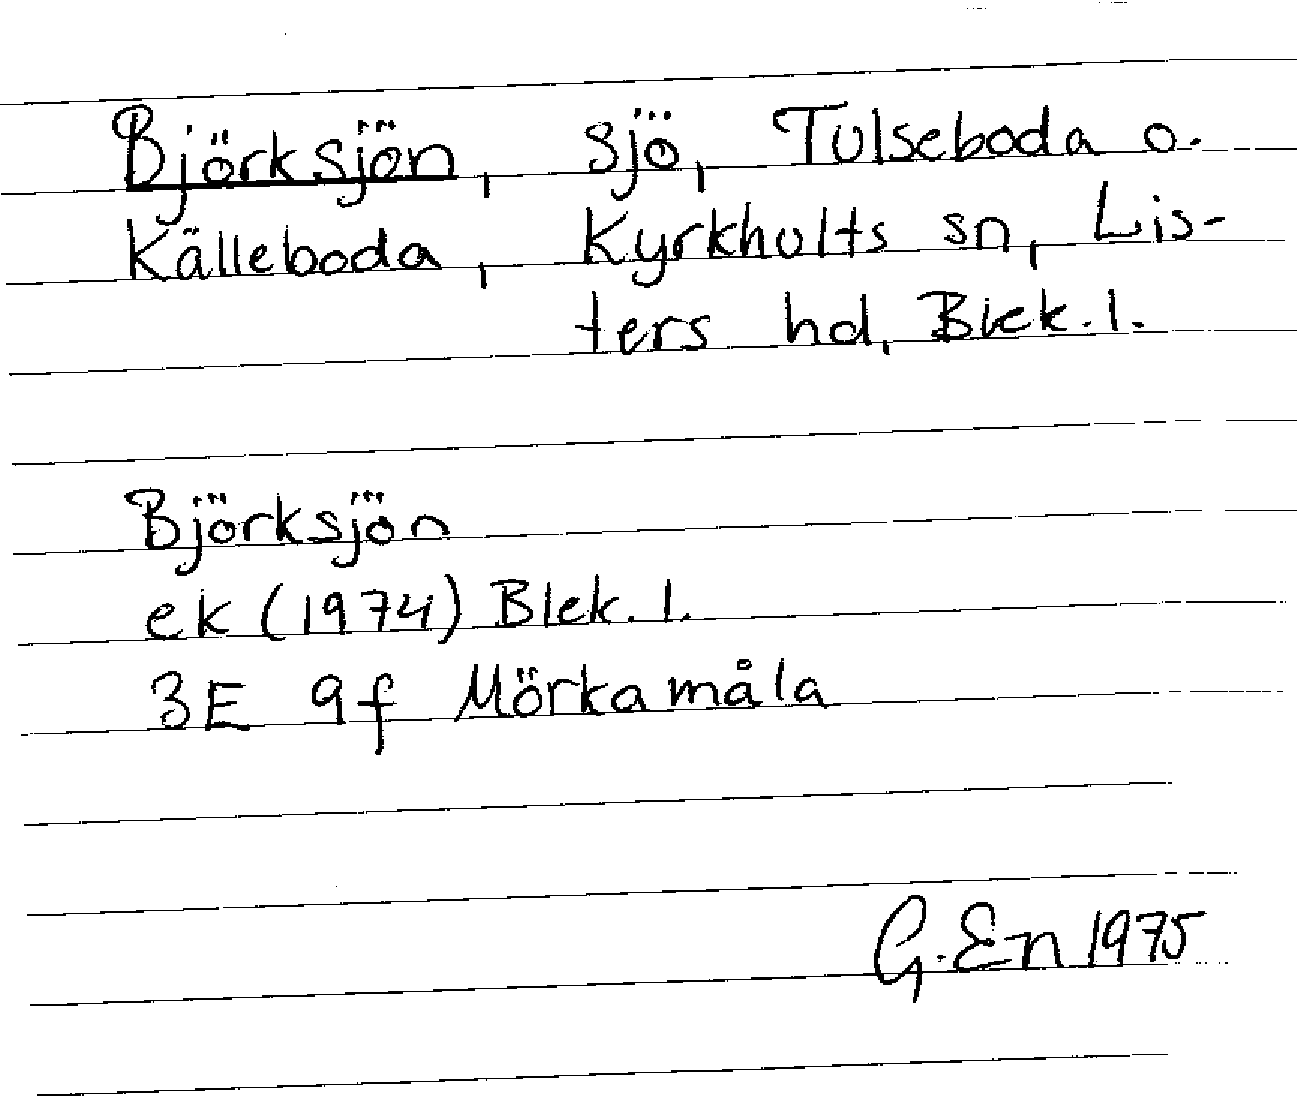 Björksjön, sjö, Tulseboda o.
Källeboda, Kyrkhults sn, Lis-
ters hd, Blek. l.
Björksjön
ek (1974) Blek. l.
3E 9f Mörkamåla
G. En 1975